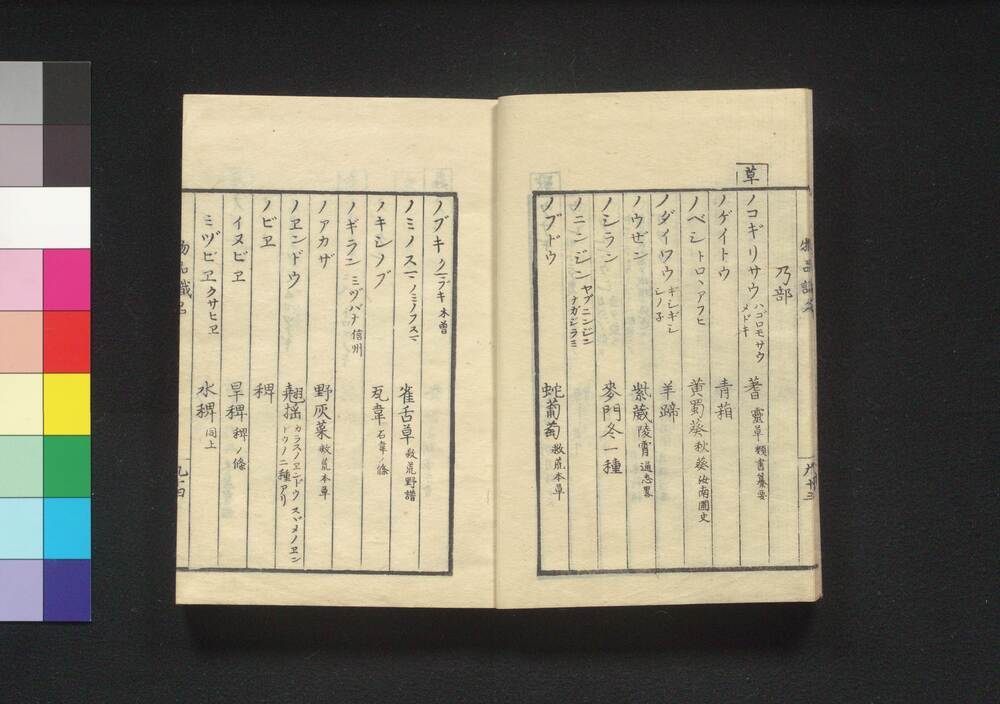 乃部
草
ノコギリサウ ハゴロモサウ メドキ 蓍 靈草 類書纂要
ノゲイトウ 青葙
ノベシトロヽアフヒ 黄蜀葵 秋葵 汝南圃史
ノダイワウ ギシギシ シノ子 羊蹄
ノウゼン 紫葳 陵霄 通志畧
ノシラン 麥門冬一種
ノニンジン ヤブニンジン ナガジラミ
ノブドウ 蛇葡萄 救荒本草
ノブキ 木曽
ノミノスマ ノミノフスマ 雀舌草 救荒野譜
ノキシノブ 瓦韋 石韋ノ條
ノギラン ミヅバナ 信州
ノアカザ 野灰菜 救荒本草
ノヱンドウ 翹揺 カラスノヱンドウ スヾメノヱンドウノ二種アリ
ノビヱ 稗
イヌビヱ 旱稗 稗ノ條
ミヅビヱ クサヒヱ 水稗 同上